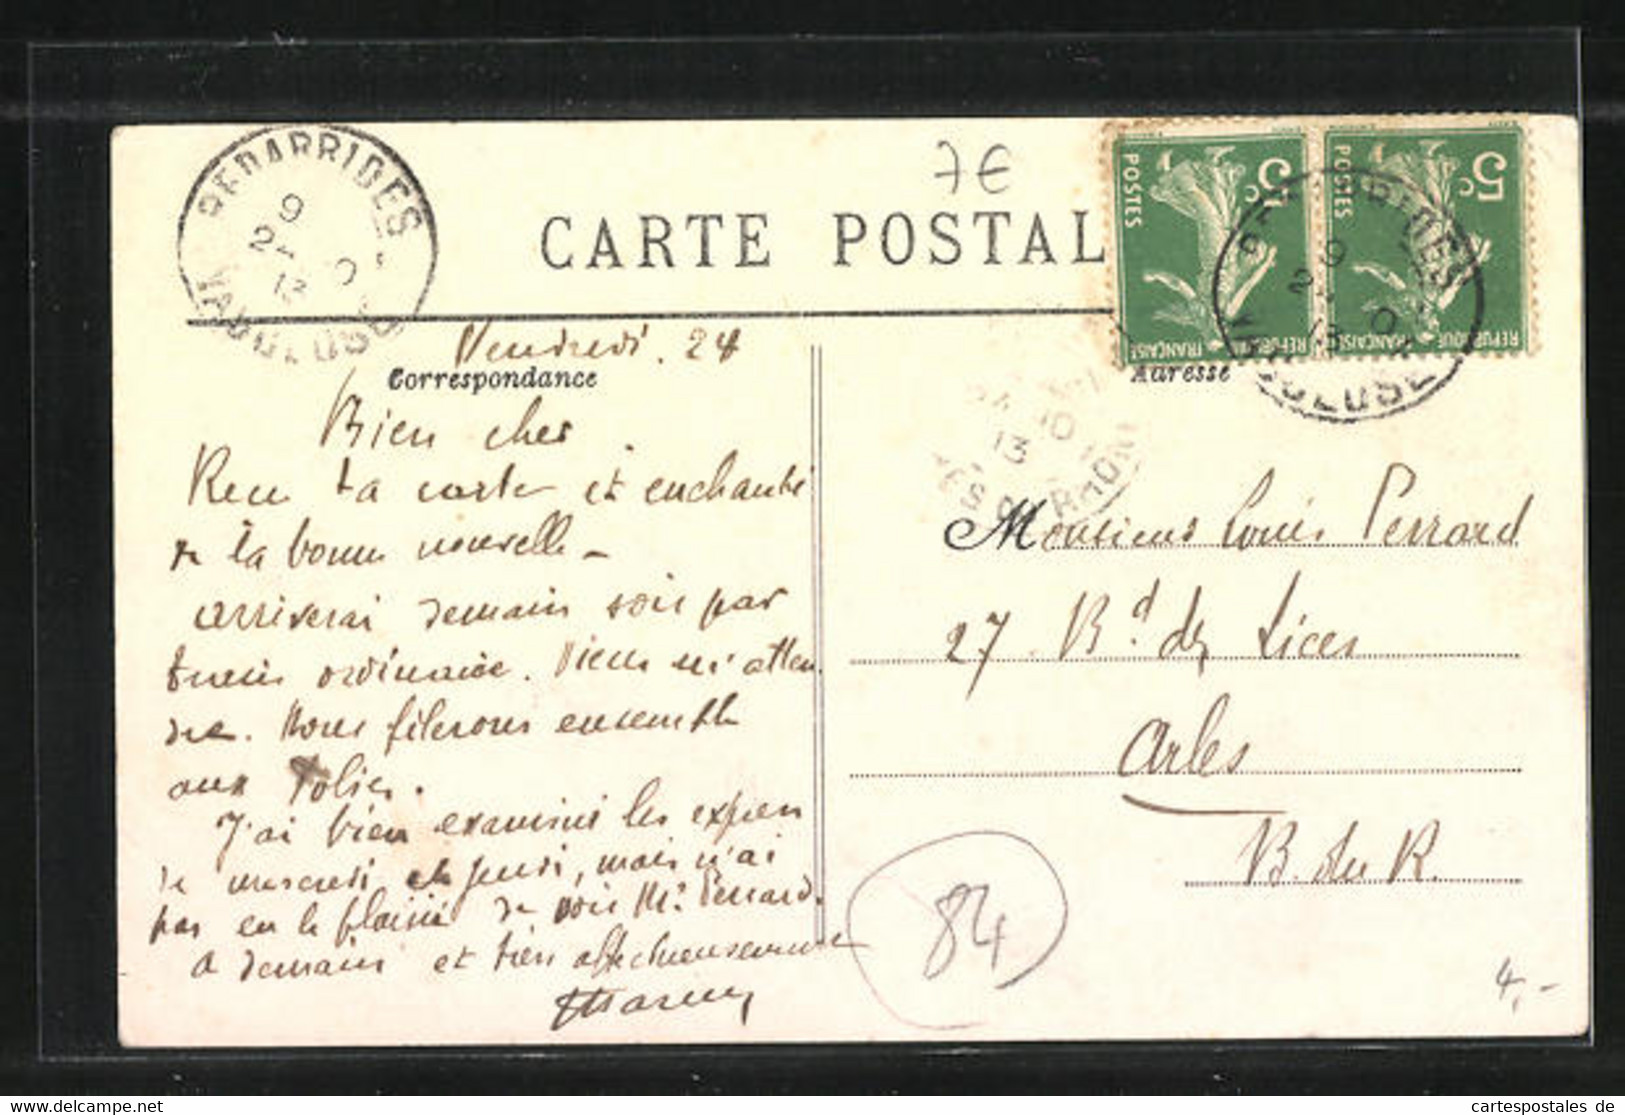 BEDARRIDES
9
24 10
13
VAUCLUSE
7€
CARTE POSTALE
POSTES
5c
REPUBLIQUE FRANÇAISE
POSTES
5c
REPUBLIQUE FRANÇAISE
BEDARRIDES
9
13
VAUCLUSE
Correspondance
Adresse
10
13
RHONE
Vendredi. 24
Bien cher
Recu ta carte et enchanté
de la bonne nouvelle –
arriverai demain soir par
train ordinaire. Viens m'atten
dre. Nous filerons ensemble
aux Folies.
J'ai bien examiné les expres
de mercredi et jeudi, mais n'ai
pas eu le plaisir de voir Mr. Perrard.
a demain et bien affectueusement
Monsieur Louis Perrard
27 Bd. des Lices
Arles
B. du R.
84
4,-
cartespostales de